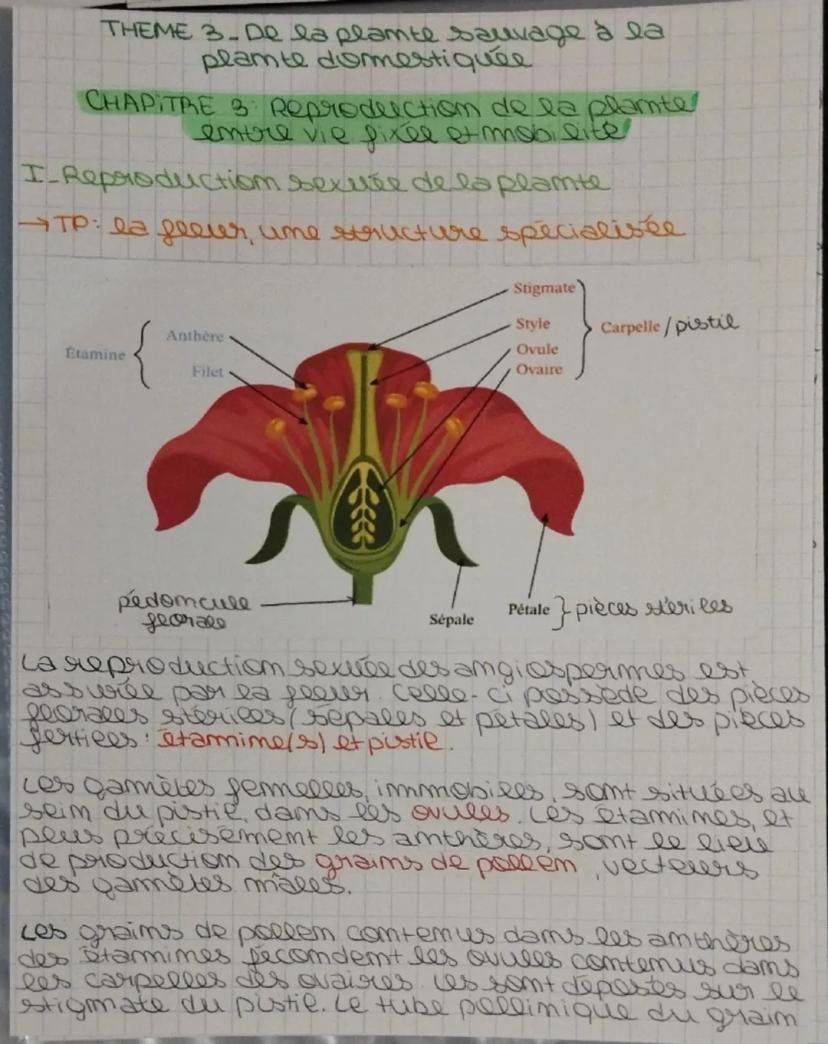 THEME 3 - De la plante sauvage à la
plante domestiquée
CHAPITRE 3: Reproduction de la plante
entre vie fixée et mobilité
I - Reproduction sexuée de la plante
→ TP: la fleur, une structure spécialisée
Stigmate
Style
Ovule
Ovaire
Carpelle / pistil
Étamine
Anthère
Filet
pédoncule
florale
Sépale
Pétale } pièces stériles
La reproduction sexuée des angiospermes est
assurée par la fleur. Celle-ci possède des pièces
florales stériles (sépales et pétales) et des pièces
fertiles : étamine(s) et pistil.
Les gamètes femelles, immobiles, sont situées au
sein du pistil, dans les ovules. Les étamines, et
plus précisément les anthères, sont le lieu
de production des grains de pollen, vecteurs
des gamètes mâles.
Les grains de pollen contenus dans les anthères
des étamines fécondent les ovules contenus dans
les carpelles des ovaires. Ils sont déposés sur le
stigmate du pistil. Le tube pollinique du grain